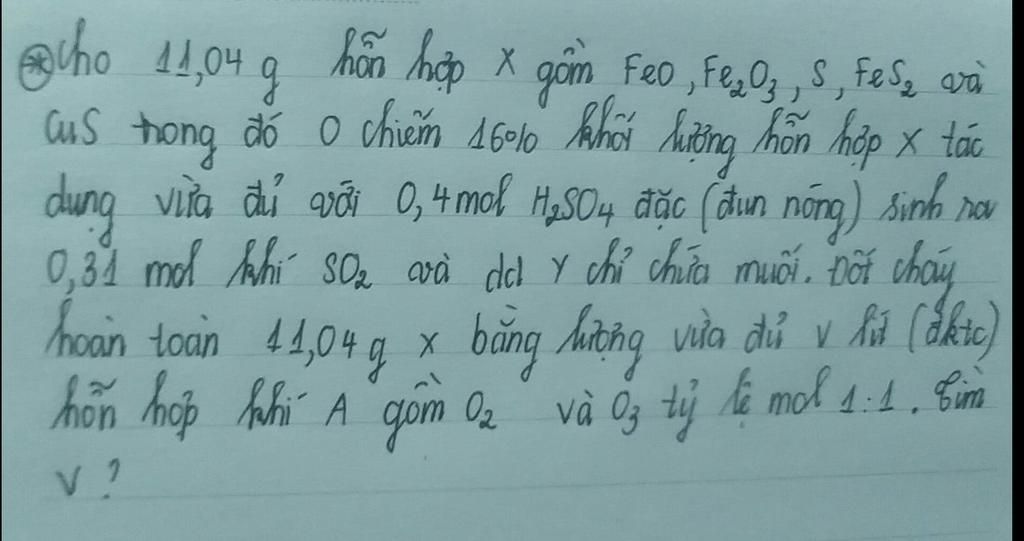 ⊛Cho 11,04 g hỗn hợp X gồm FeO, Fe₂O₃, S, FeS₂ và
CuS trong đó O chiếm 16% khối lượng hỗn hợp X tác
dụng vừa đủ với 0,4 mol H₂SO₄ đặc (đun nóng) sinh ra
0,31 mol khí SO₂ và dd Y chỉ chứa muối. Đốt cháy
hoàn toàn 11,04 g X bằng lượng vừa đủ V lít (đktc)
hỗn hợp khí A gồm O₂ và O₃ tỷ lệ mol 1:1. Tìm
V?